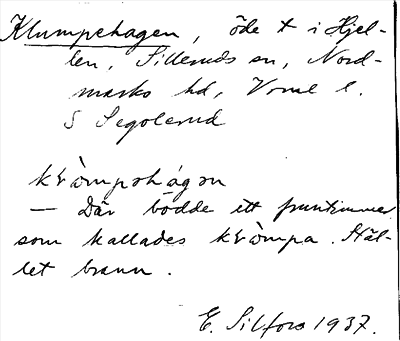 Klumpehagen, öde t i Hjel-
len, Silleruds sn, Nord-
marks hd, Vrml l.
S Segolerud
kròmpohágon
— Där bodde ett fruntimmer
som kallades kròmpa. Stäl-
let brann.
E. Silfors 1937.